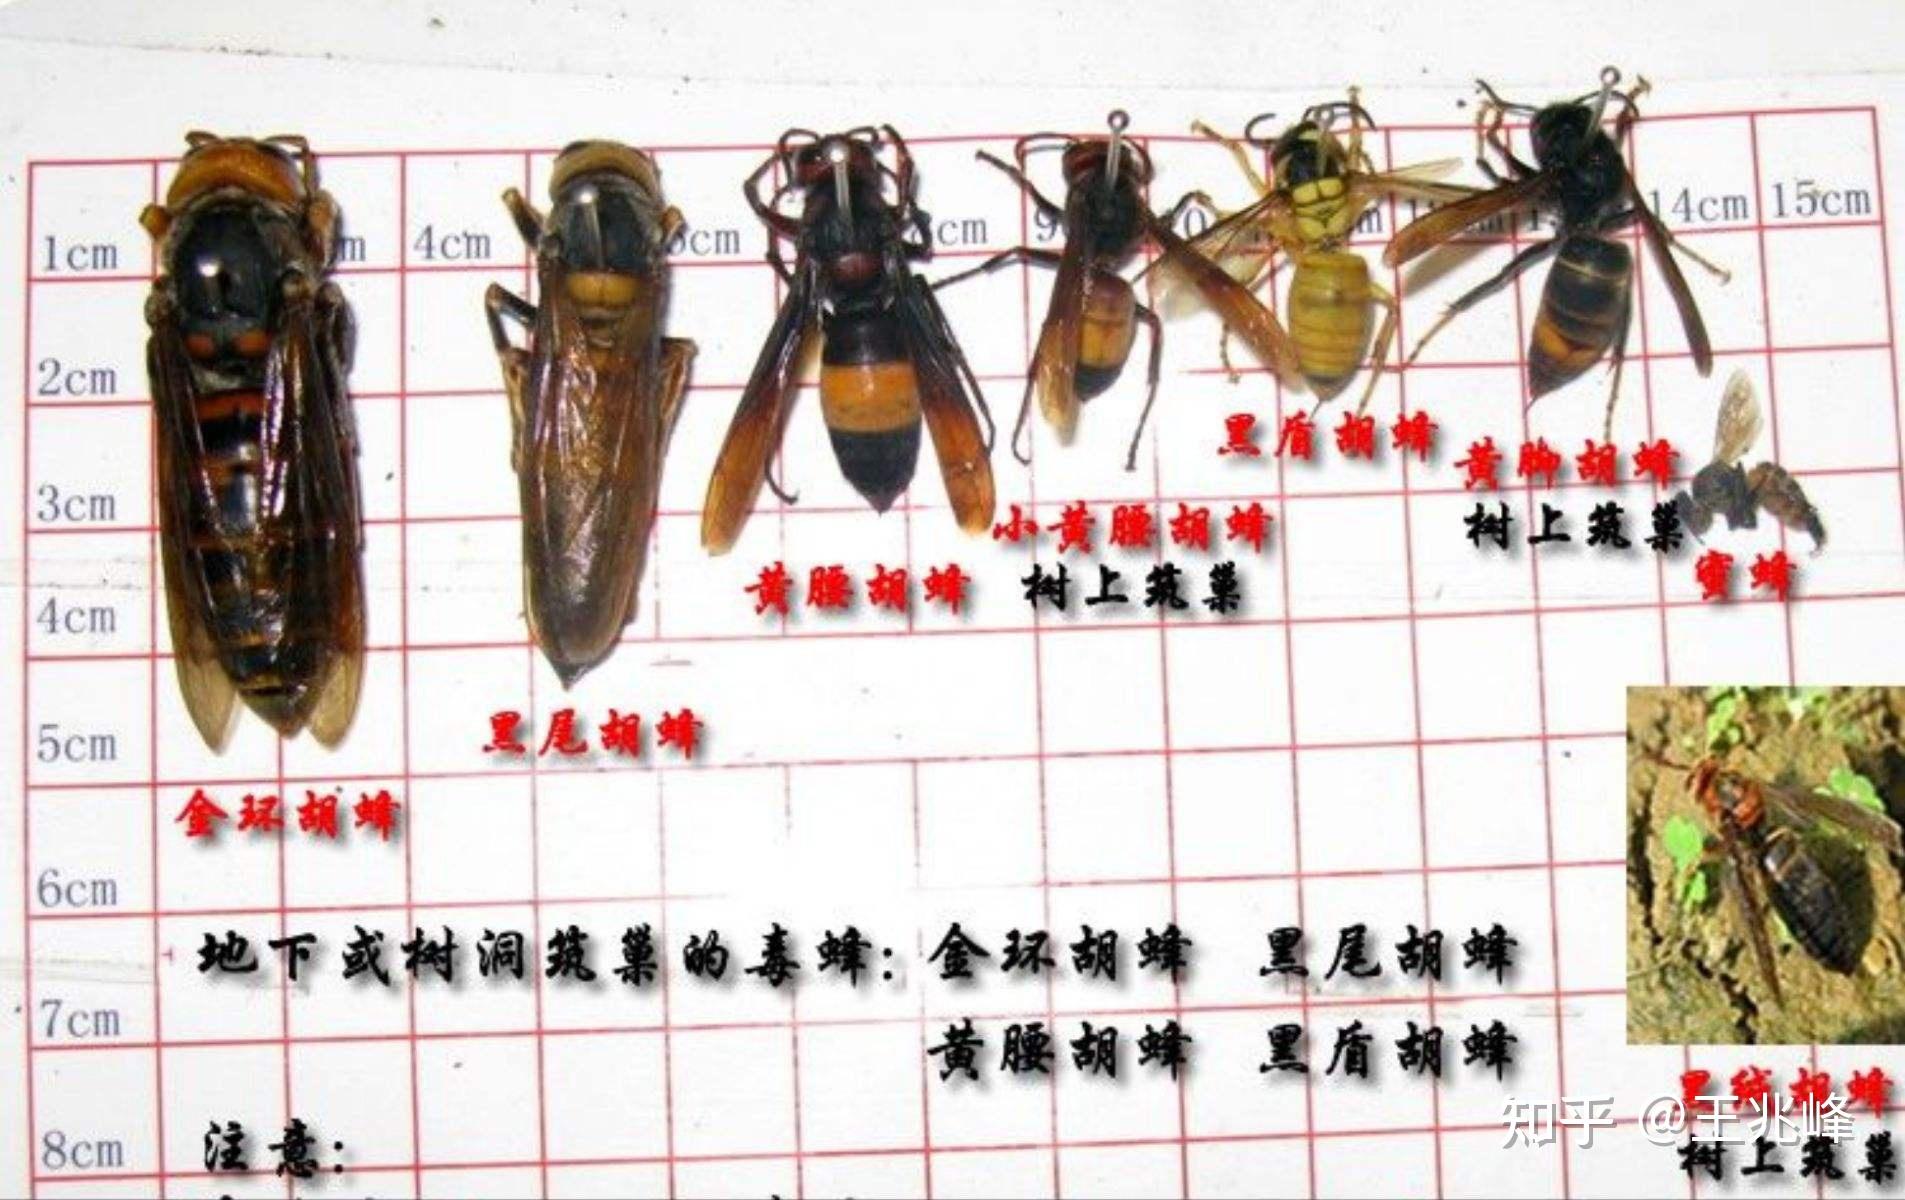 1cm
4cm
14cm 15cm
2cm
3cm
4cm
5cm
6cm
7cm
8cm
黑盾胡蜂
黄脚胡蜂
树上筑巢
小黄腰胡蜂
树上筑巢
黄腰胡蜂
蜜蜂
黑尾胡蜂
金环胡蜂
地下或树洞筑巢的毒蜂：金环胡蜂 黑尾胡蜂
黄腰胡蜂 黑盾胡蜂
注意：
黑绒胡蜂
树上筑巢
知乎 @王兆峰